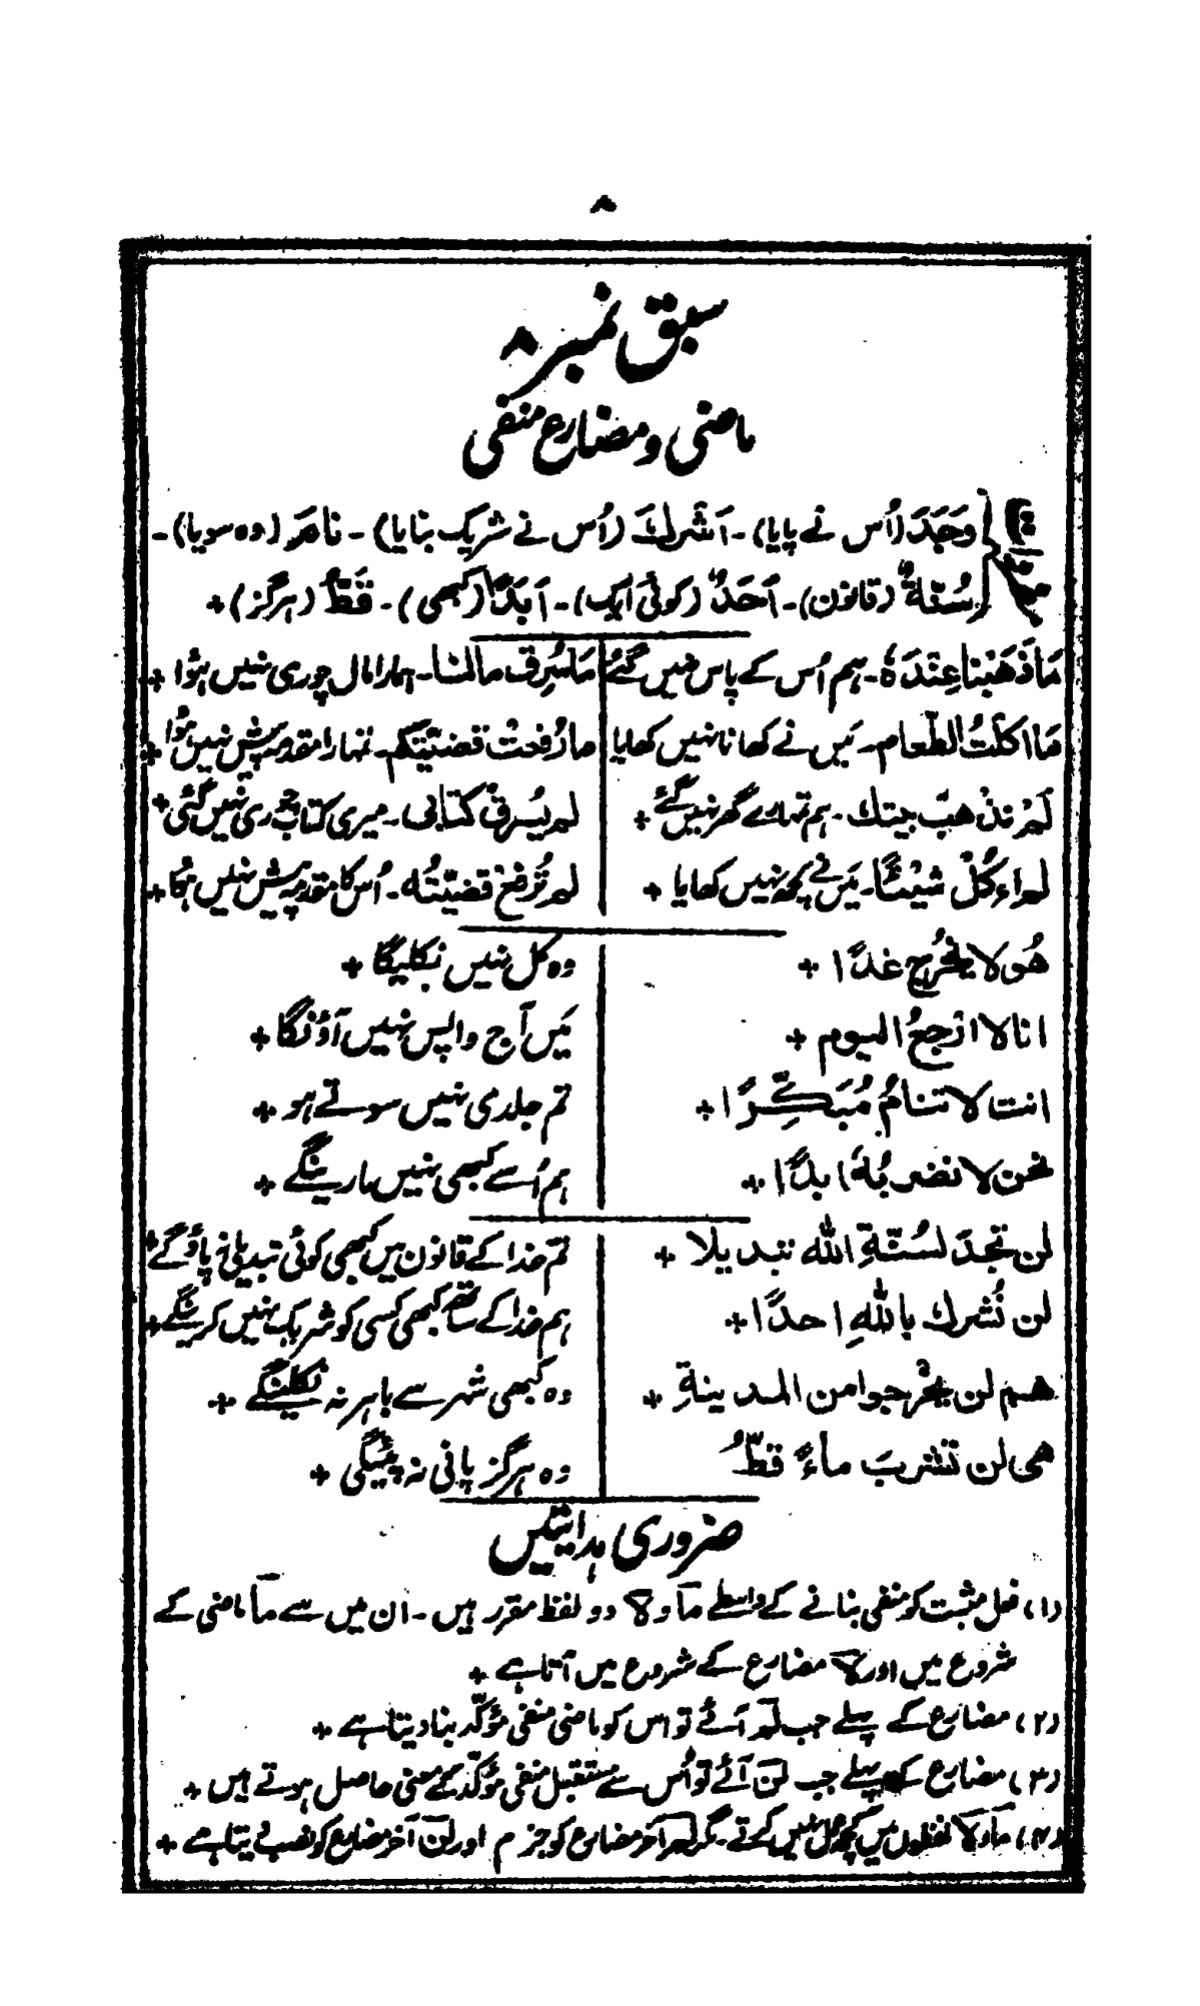 ۸
سبق نمبر ۸
ماضی و مضارع منفی
وَجَدَ (اُس نے پایا) ۔ اَشْرَكَ (اُس نے شریک بنایا) ۔ نامَ (وہ سویا) ۔
سُنّةٌ (قانون) ۔ اَحَدٌ (کوئی ایک) ۔ اَبَدًا (کبھی) ۔ قَطُّ (ہرگز) +
مَا ذَهَبْنا عِنْدَهٗ ۔ ہم اُس کے پاس نہیں گئے
مَا سُرِق مالُنا ۔ ہمارا مال چوری نہیں ہؤا +
مَا اکلتُ الطّعام ۔ مَیں نے کھانا نہیں کھایا
ما رُفعتْ قضیّتکم ۔ تمہارا مقدمہ پیش نہیں ہؤا +
لَمْ نذْهبْ بیتك ۔ ہم تمہارے گھر نہیں گئے +
لم یُسرقْ کتابی ۔ میری کتاب چوری نہیں گئی +
لم اٰکُلْ شیْئًا ۔ مَیں نے کچھ نہیں کھایا +
لم تُرفعْ قضیّتُه ۔ اُس کا مقدمہ پیش نہیں ہؤا +
هُو لا یخْرُج غدًا +
وہ کل نہیں نکلیگا +
انا لا ارْجعُ الیوم +
مَیں آج واپس نہیں آؤنگا +
انت لا تنامُ مُبَکِّرًا +
تم جلدی نہیں سوتے ہو +
نحن لا نضربُهٗ ابدًا +
ہم اُسے کبھی نہیں مارینگے +
لن تجدَ لسُنّةِ اللّٰه تبدیلا +
تم خدا کے قانون میں کبھی کوئی تبدیلی نہ پاؤگے +
لن نُشرك باللّٰهِ احدًا +
ہم خدا کے ساتھ کبھی کسی کو شریک نہیں کرینگے +
هم لن یخْرجوا من المدینةِ +
وہ کبھی شہر سے باہر نہ نکلینگے +
هی لن تشربَ ماءً قطُّ
وہ ہرگز پانی نہ پیئیگی +
ضروری ہدایتیں
(۱) فعل مثبت کو منفی بنانے کے واسطے مَا و لا دو لفظ مقرر ہیں ۔ ان میں سے مَا ماضی کے
شروع میں اور لا مضارع کے شروع میں آتا ہے +
(۲) مضارع کے پہلے جب لَمْ آئے تو اس کو ماضی منفی مؤکّد بنا دیتا ہے +
(۳) مضارع کے پہلے جب لَن آئے تو اُس سے مستقبل منفی مؤکّد کے معنی حاصل ہوتے ہیں +
(۴) مَا و لا لفظوں میں کچھ عمل نہیں کرتے ۔ مگر لم آخر مضارع کو جزم اور لن آخر مضارع کو نصب دیتا ہے +